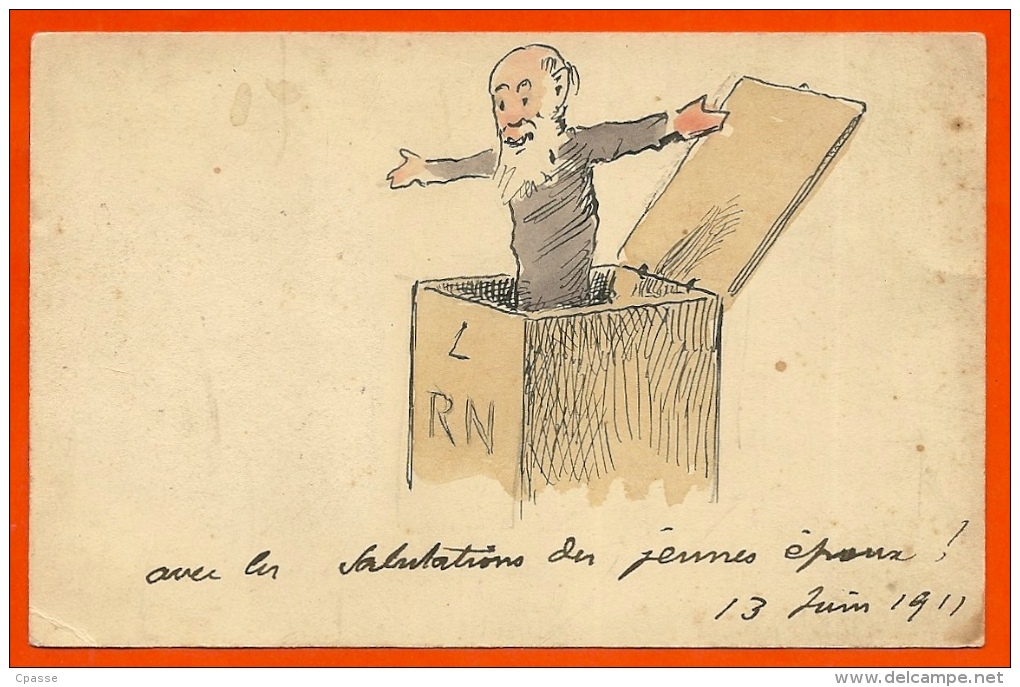 L
RN
avec les salutations des jeunes époux !
13 Juin 1911
Cpasse
www.delcampe.net